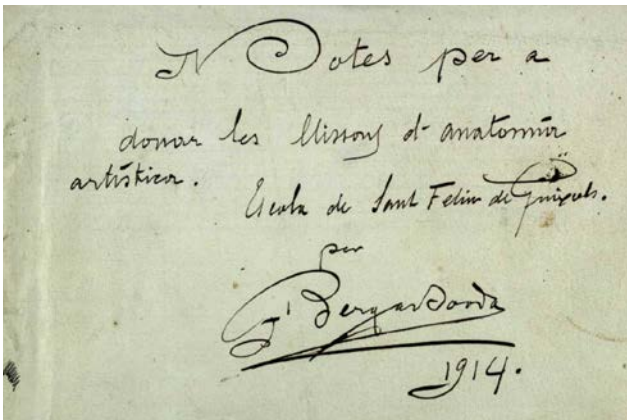 Notes per a
donar les llissons d'anatomia
artística.
Escola de Sant Feliu de Guíxols.
per
J. Berga Boada
1914.